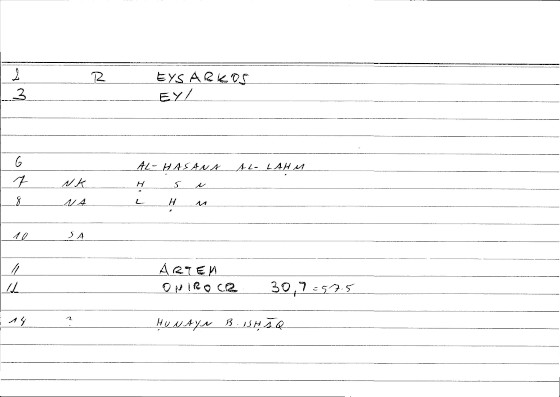 2 R EYSARKOS
3 EY/
6 AL-ḤASANA AL-LAḤM
7 NK Ḥ S N
8 NA L Ḥ M
10 SA
11 ARTEM
12 ONIROCR 30,7=575
14 ? ḤUNAYN B. ISḤĀQ